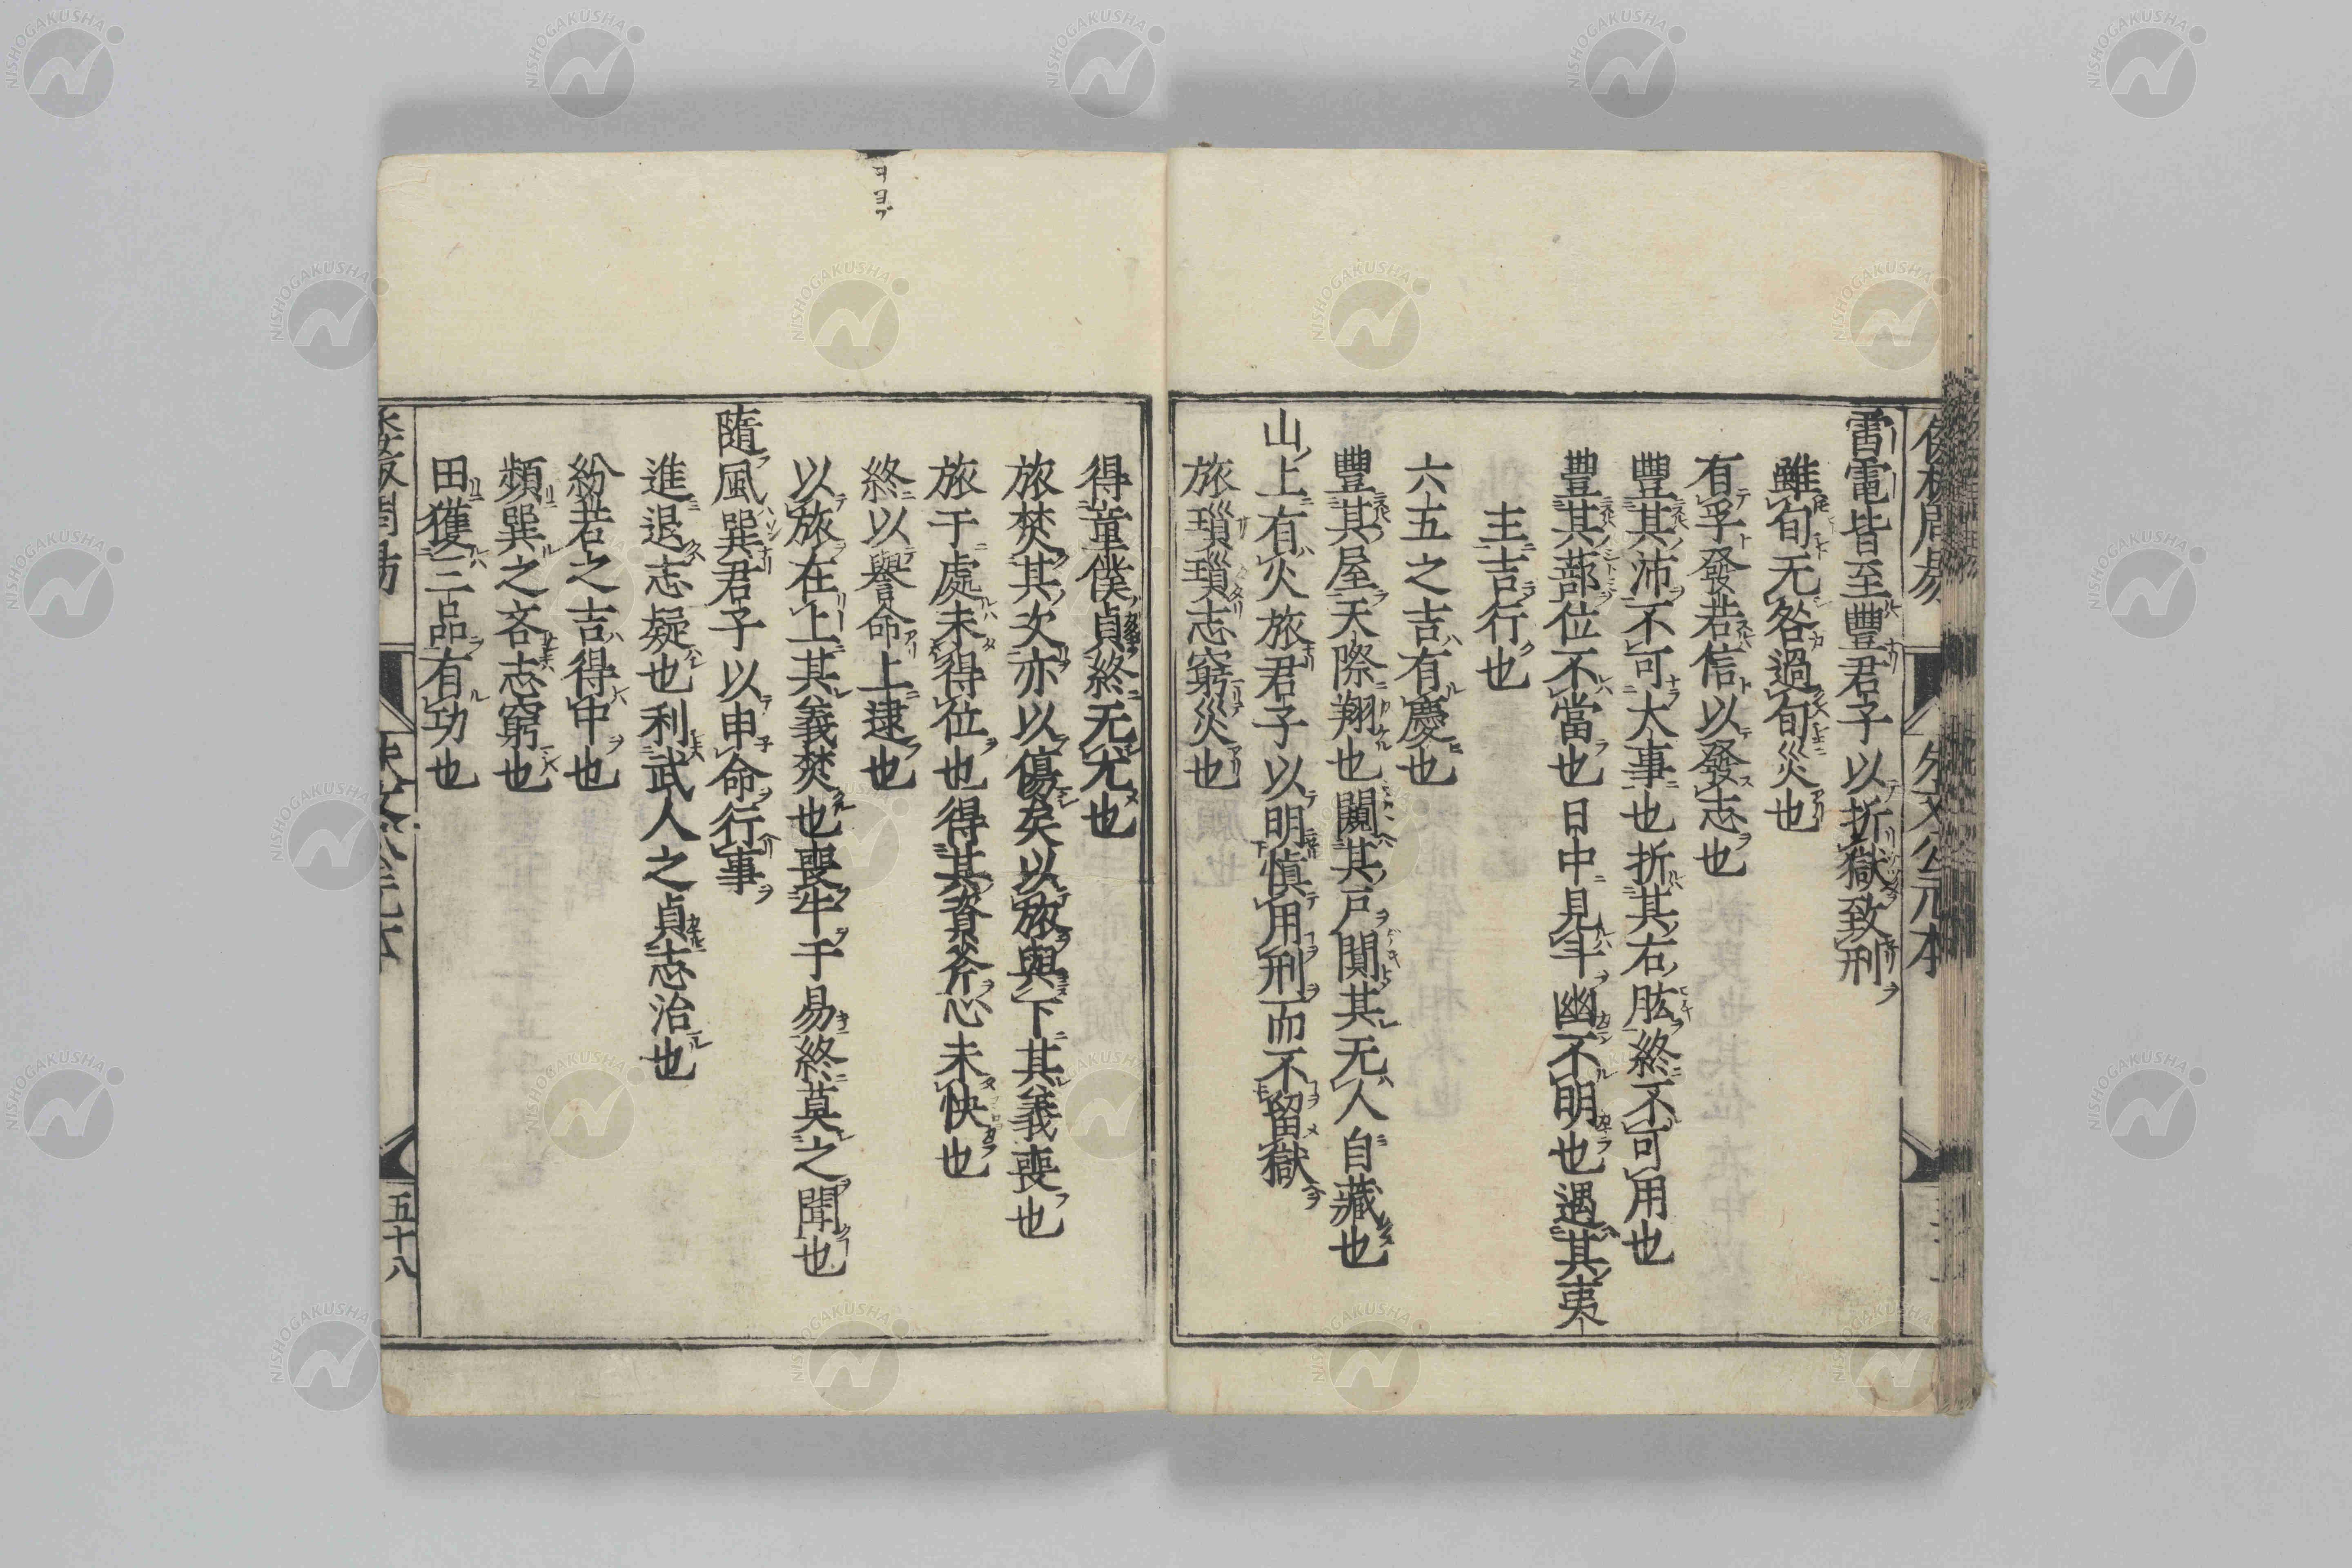 雷電皆至豐君子以折獄致刑
雖旬无咎過旬災也
有孚發若信以發志也
豐其沛不可大事也折其右肱終不可用也
豐其蔀位不當也日中見斗幽不明也遇其夷
主吉行也
六五之吉有慶也
豐其屋天際翔也闚其戶闃其无人自藏也
山上有火旅君子以明慎用刑而不留獄
旅瑣瑣志窮災也
得童僕貞終无尤也
旅焚其次亦以傷矣以旅與下其義喪也
旅于處未得位也得其資斧心未快也
終以譽命上逮也
以旅在上其義焚也喪牛于易終莫之聞也
隨風巽君子以申命行事
進退志疑也利武人之貞志治也
紛若之吉得中也
頻巽之吝志窮也
田獲三品有功也
五十八
NISHOGAKUSHA